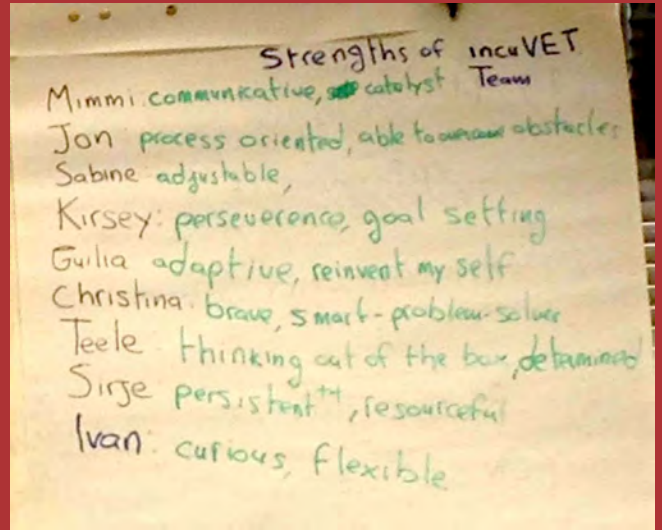 Strengths of incuVET
Team
Mimmi: communicative, catalyst
Jon process oriented, able to overcome obstacles
Sabine adjustable,
Kirsey: perseverence, goal setting
Guilia adaptive, reinvent my self
Christina: brave, smart-problem-solver
Teele thinking out of the box, determined
Sirje persistent++, resourceful
Ivan: curious, flexible